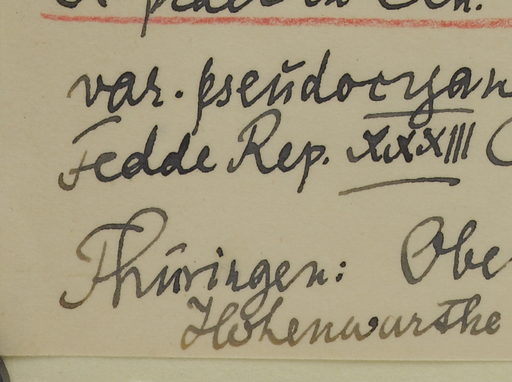 var. pseudocyan
Fedde Rep. XXXIII (
Thüringen: Obe
Hohenwarthe